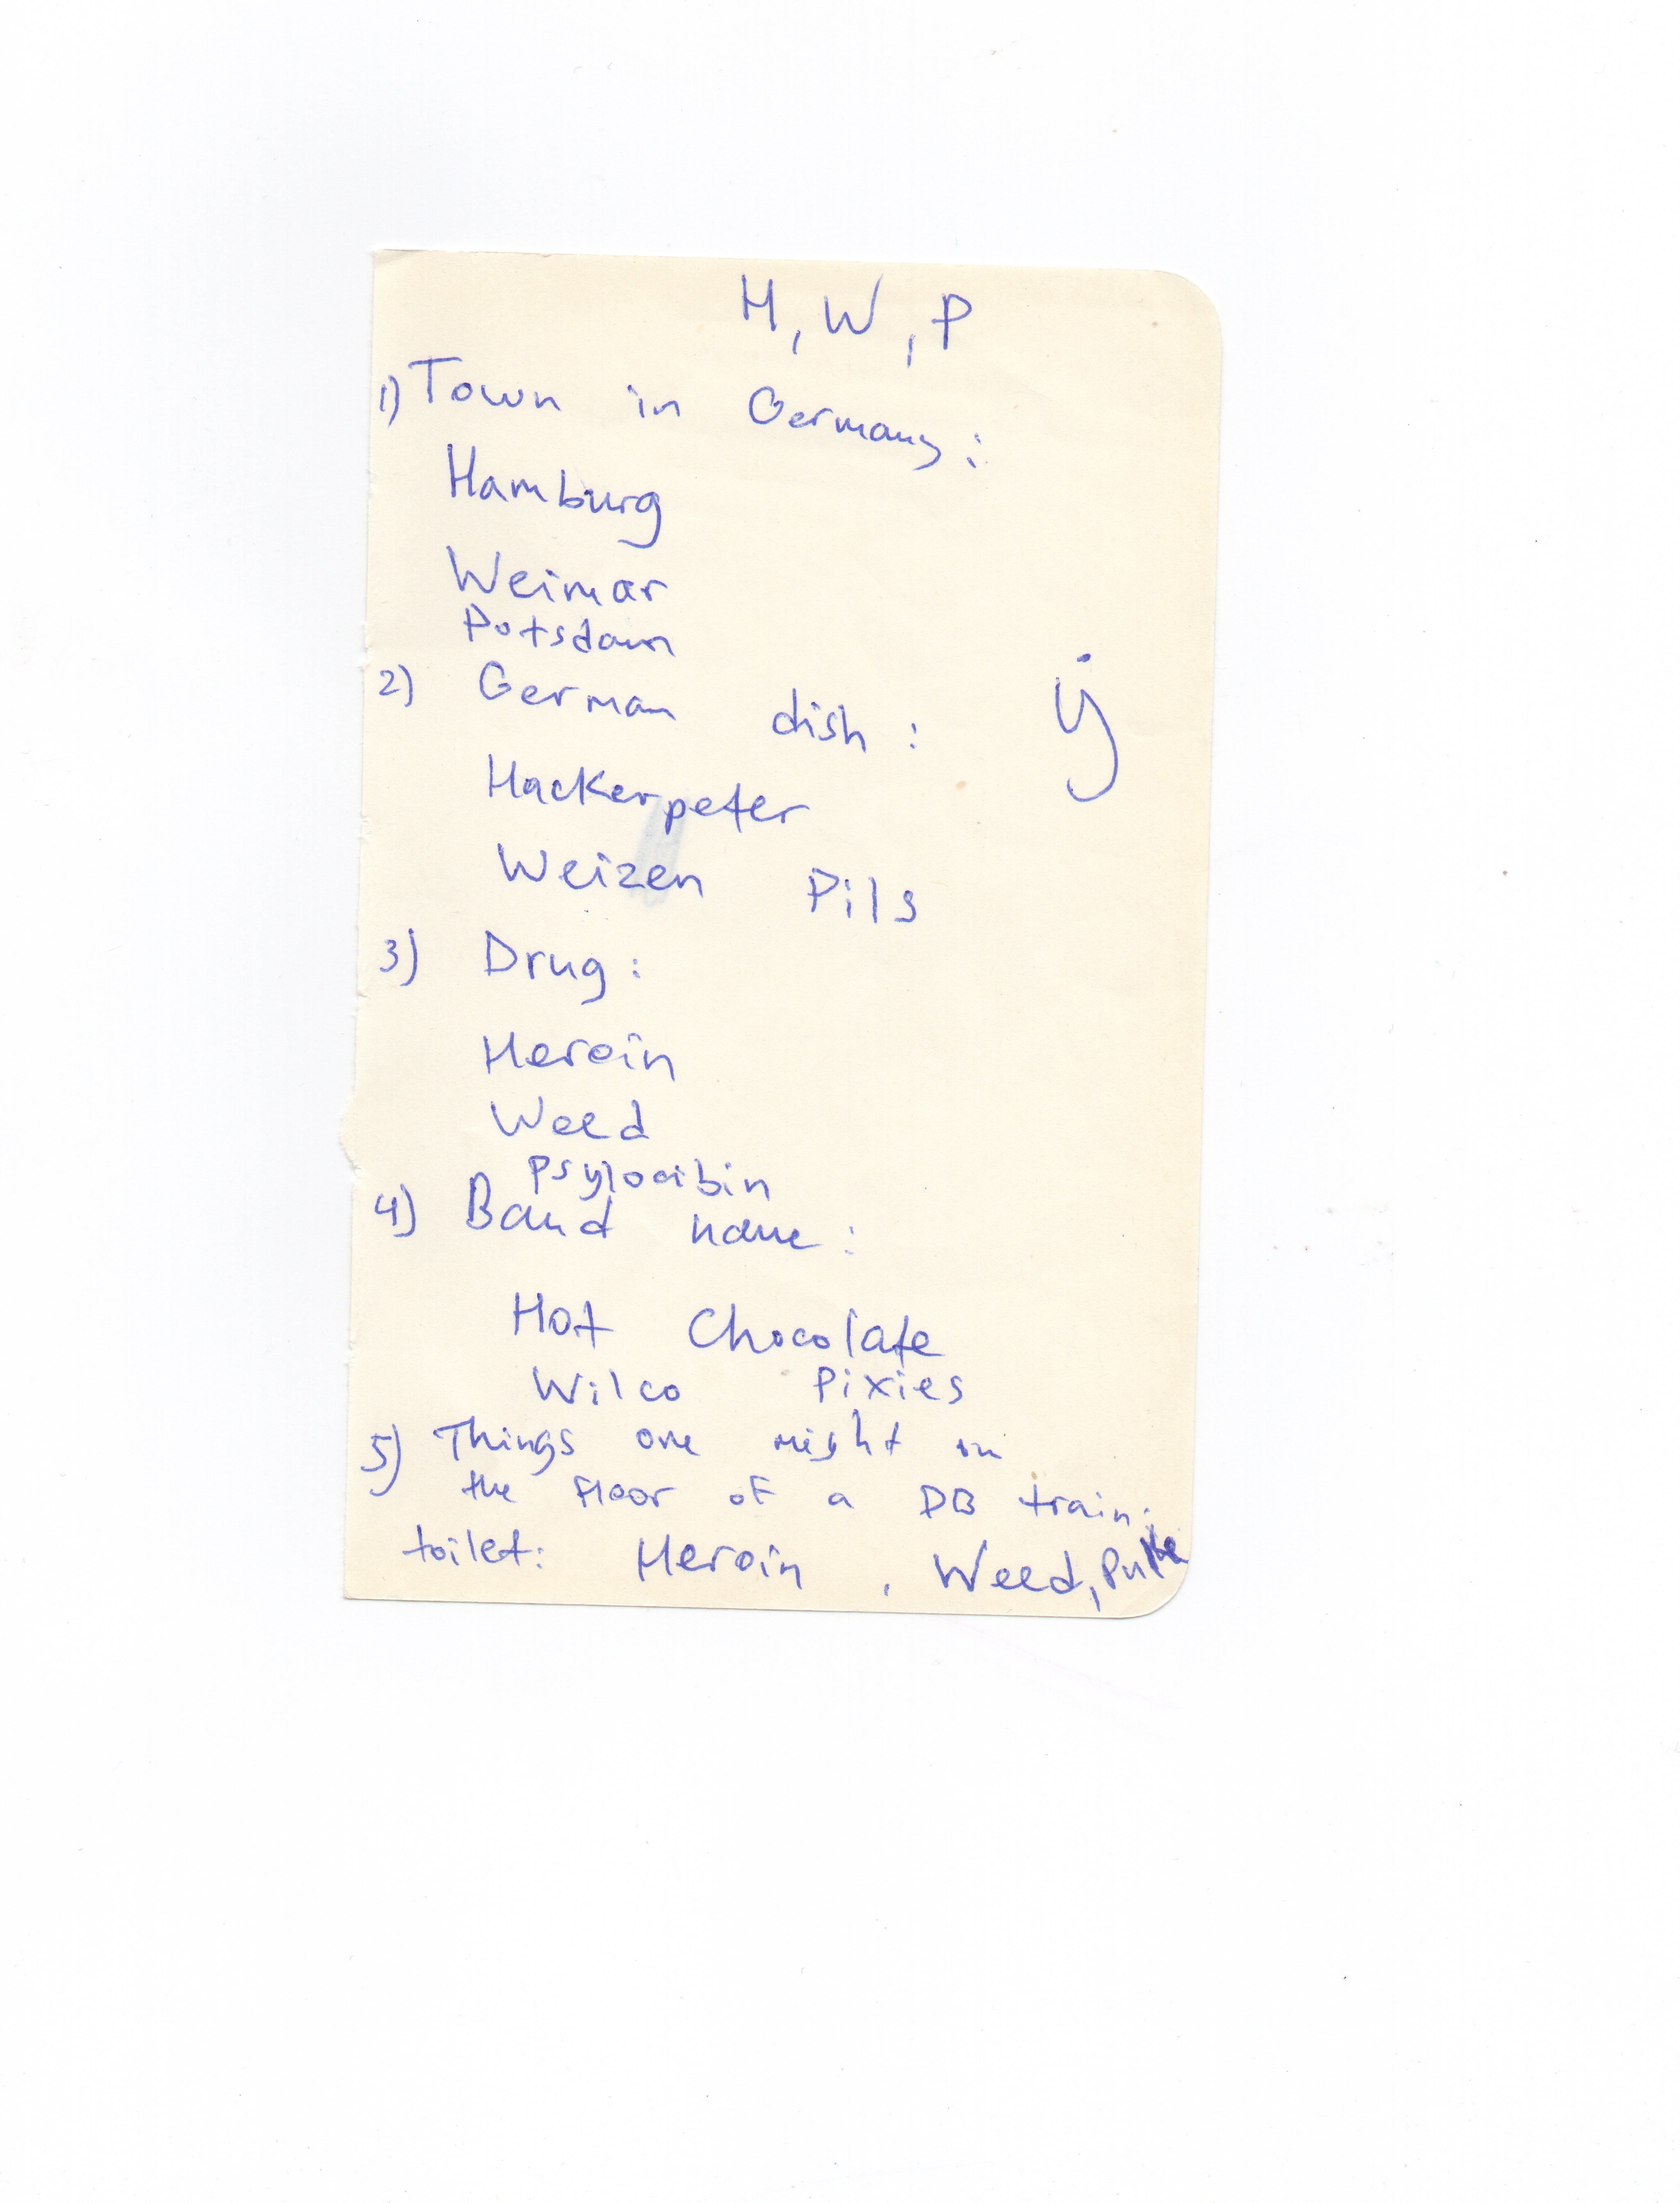 H, W, P
1) Town in Germany:
Hamburg
Weimar
Potsdam
2) German dish:
Hackerpeter
Weizen Pils
3) Drug:
Heroin
Weed
Psylocibin
4) Band name:
Hot Chocolate
Wilco Pixies
5) Things one might on
the floor of a DB train
toilet: Heroin, Weed,